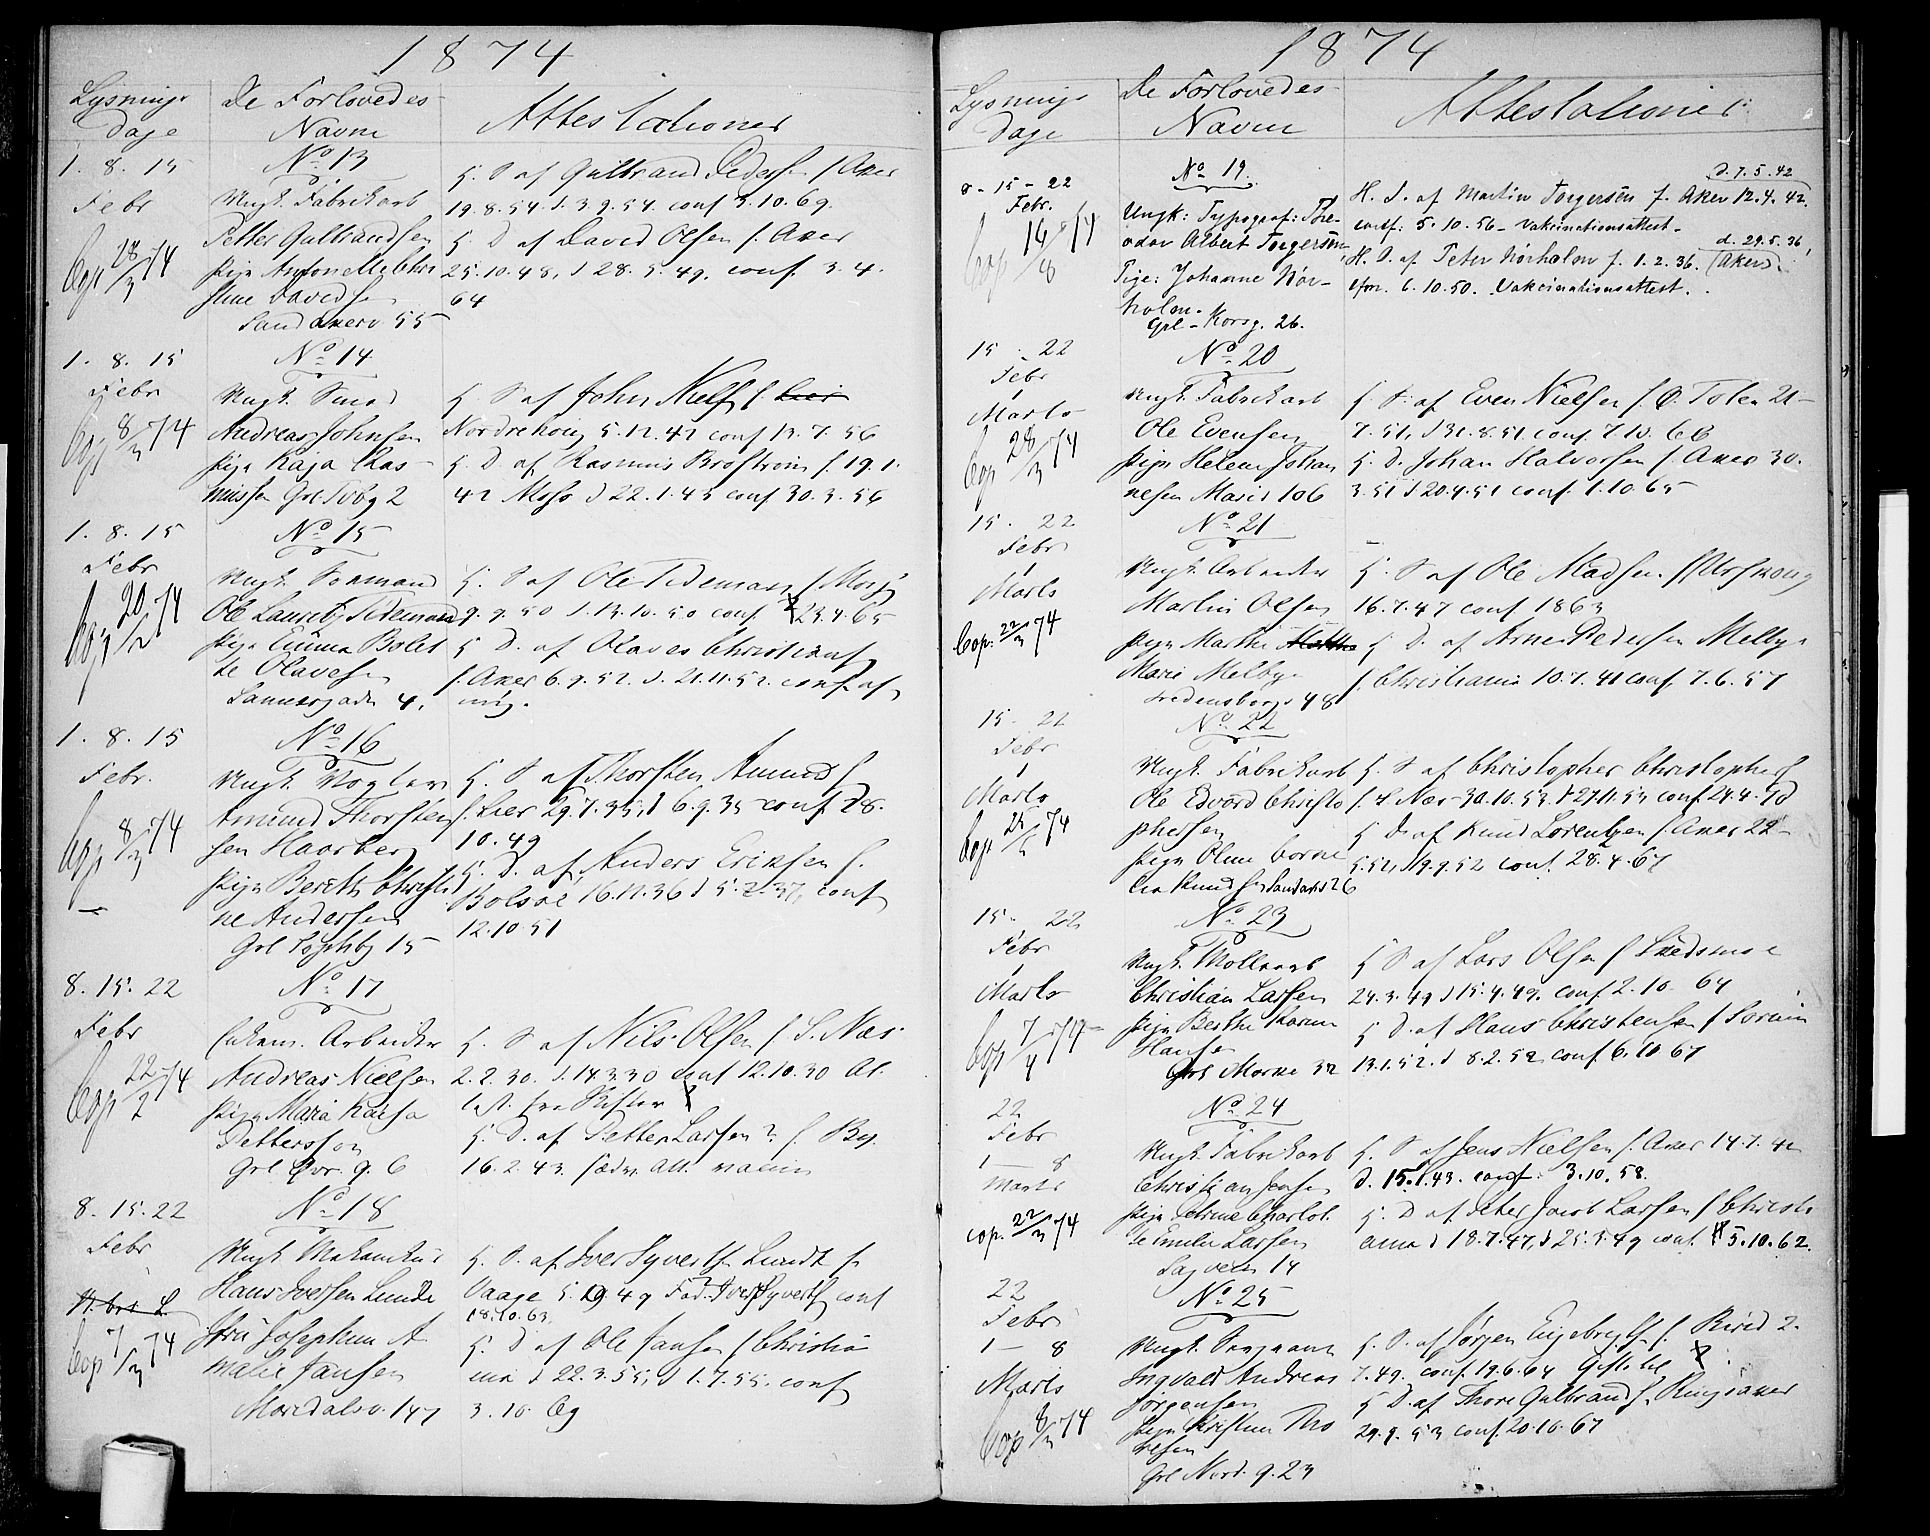 1874
Lysnings Dage
De Forlovedes Navne
Attestationer
1. 8. 15 Febr
Cop 28/3 74
No 13
Ungk. Fabrikarb
Petter Gulbrandsen
Pige Antonette Chri
stine Davids
Sandakerv 55
H. S. af Gulbrand Peders f. Aker
19.8.54. d. 3.9.54. conf 3.10.69.
H. D. af David Olsen f. Aker
25.10.48, d 28.5.49, conf. 3.4.
64
1. 8. 15
Febr
Cop 8/3 74
No 14
Ungk. Smed
Andreas Johnsen
Pige Kaja Ras-
mussen Grl Tvbg 2
H. S. af John Niels f.
Nordrehoug 5.12.42 conf 13.7.56
H. D. af Rasmus Brostrøm f. 19.1.
42 Moss d 22.1.45 conf 30.3.56
1. 8. 15
Febr
Cop 20/2 74
No 15
Ungk. Sømand
Ole Lauritz Tidemand
Pige Emma Bolet
te Olavesen
Sannergade 4,
H. S. af Ole Tidemans f Moss
9.9.50 d. 13.10.50 conf 23.4.65
H. D. af Olaves Christians
f. Aker 6.9.52. d. 21.11.52. conf af
mig.
1. 8. 15
Febr.
Cop 8/3 74
No 16
Ungk. Vogter
Amund Thorsten
sen Haarberg
Pige Berith Christi
ne Andersen
Grl Sophbg 15
H. S. af Thorsten Amunds
f. Lier 29.7.35, d 6.9.35 conf 28.
10.49
H. D. af Anders Eriksen f.
Bolsøe 16.11.36 d 5.2.37, conf
12.10.51
8. 15. 22
Febr
Cop 22/2 74
No 17
Enkem. Arbeider
Andreas Nielsen
Pige Maria Kaisa
Pettersson
Grl Øvr. g. 6
H. S. af Nils Olsen f. S. Næs
2.2.30. d. 14.3.30 conf 12.10.30 At.
test. fra Skifter
H. D. af Petter Larsen ? f. By.
16.2.43. sædv. Att. vaccin
8. 15. 22
Febr
Cop 7/3 74
No 18
Ungk. Mekanikus
Hans Iversen Lunde
Fru Josephine A
malie Jansen
Maridalsv. 147
H. S. af Iver Syverts Lundt f.
Vaage 5.10.49 Fad. Ivers Syverts conf
18.10.63.
H. D. af Ole Jansen f Christia
nia d 22.3.55, d 1.7.55. conf
3.10.69
1874
Lysnings Dage
De Forlovedes Navne
Attestationer.
8 - 15 - 22
Febr.
Cop 16/8 74
No 19.
Ungk: Typograf: Theo-
odor Albert Torgersen,
Pige: Johanne Nør-
holm.
Grl - Korsg. 26.
d. 7.5.42
H. S. af Martin Torgersen f. Aker 12.4.42.
conf: 5.10.56 - Vakcinationsattest.
d. 29.5.36
H. D. af Peter Nørholm f. 1.2.36. (Aker)
cfm. 6.10.50. Vakcinationsattest.
15 - 22
Febr
1
Marts
Cop 28/3 74
No 20
Ungk Fabrikarb
Ole Evensen
Pige Helene Johan
nesen Marid 106
H. S. af Even Nielsen f. Ø. Toten 21-
7.51, d 31.8.51 conf. 7.10.66
H. D. Johan Halvorsen f. Aker 30.
3.51 d 20.4.51 conf. 1.10.65
15. 22
Febr
1
Marts
Cop. 22/3 74
No 21
Ungk. Arbeider
Martin Olsen
Pige Marthe
Marie Melby
Fredensborg 48
H. S. af Ole Madsen f Urskoug
16.7.47 conf 1863
H. D. af Arne Pedersen Melby
f. Christiania 10.7.41 conf. 7.6.57
15 - 22
Febr
1
Marts
Cop 74
No 22
Ungk. Fabrikarb
Ole Edvard Christo
phersen
Pige Oline Corne
lia Knuds Sandakv 26
H. S. af Christopher Christophers
f. S. Næs 30.10.53. d 27.11.53 conf 24.4.70
H. D. af Knud Lorentzen f. Aker 22-
5.52, d 19.9.52 conf. 28.4.67
15. 22
Febr
1
Marts
Cop 7/4 74
No 23
Ungk. Møllearb
Christian Larsen
Pige Berthe Karine
Hansen
Grl Markv 32
H. S. af Lars Olsen f Skedsmoe
24.3.49 d 15.4.49. conf 2.10.64
H. D. af Hans Christensen f Sørum
13.1.52. d 8.2.52 conf 6.10.67
22
Febr
1 - 8
Marts
cop. 22/3 74
No 24
Ungk. Fabrikarb
Christian Jensen
Pige Petrine Charlot
te Emilie Larsen
Sagveien 14
H. S. af Jens Nielsen f. Aker 14.1.42
d. 15.1.43. conf: 3.10.58.
H. D. af Peter Jacob Larsen f Christi
ania d 18.7.47, d 25.3.49 conf. 5.10.62.
22
Febr
1 - 8
Marts
Cop 8/3 74
No 25
Ungk. Sergeant
Ingvald Andreas
Jørgensen
Pige Kristine Tho
resen
Grl Nord. g. 23
H. S. af Jørgen Engebrigts f. Biri d 2.
7.49. conf. 19.6.64
H. D. af Thore Gulbrands Ringsaker
29.9.53 conf. 20.10.67